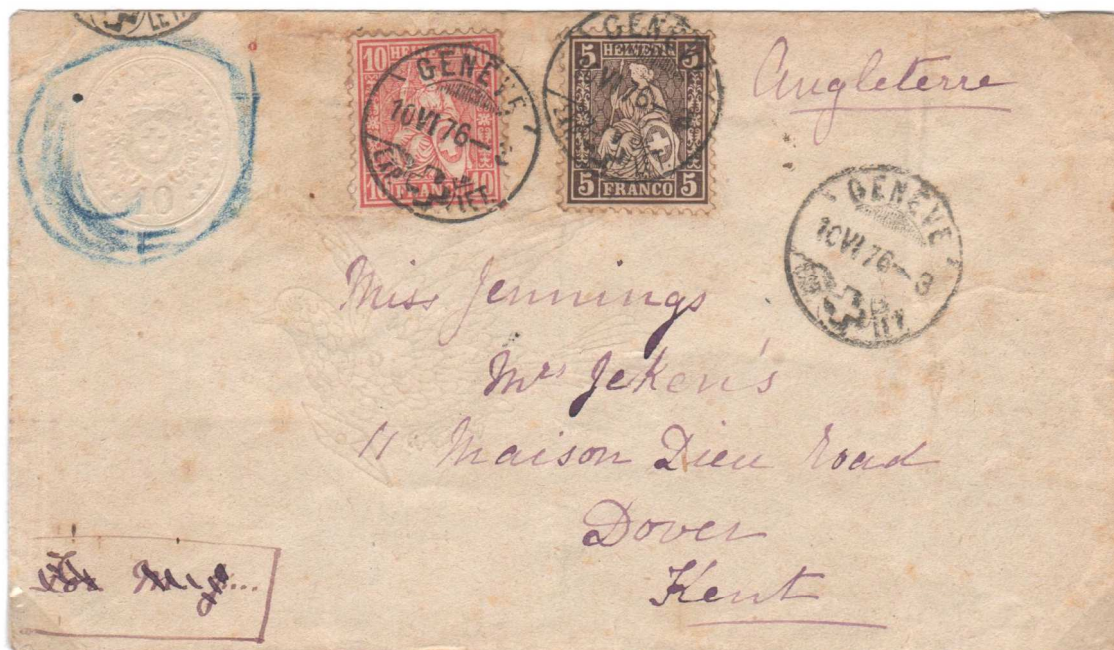 LETT
10
10 HELVETIA 10
10 FRANCO 10
GENÈVE
10 VI 76 – 3
EXP. LETT.
5 HELVETIA 5
5 FRANCO 5
GENÈVE
VI 76
Angleterre
GENÈVE
10 VI 76 – 3
Miss Jennings
Mrs Jeken's
11 Maison Dieu Road
Dover
Kent